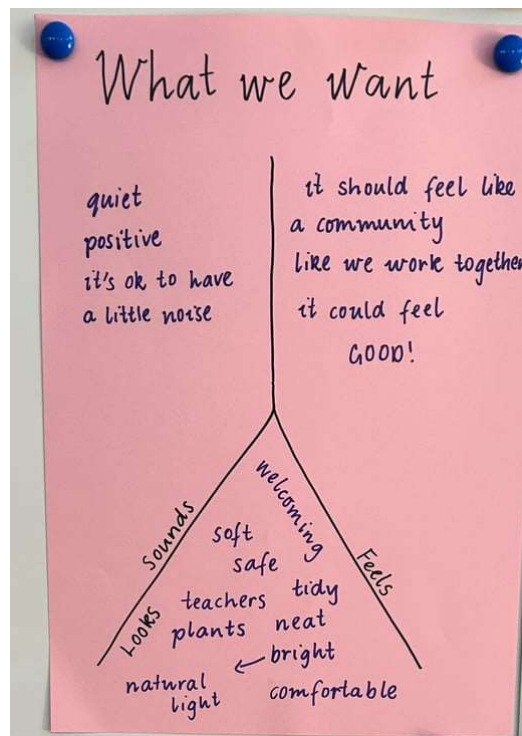 What we want
quiet
positive
it's ok to have
a little noise
it should feel like
a community
like we work together
it could feel
GOOD!
Sounds
Feels
Looks
welcoming
soft
safe
teachers tidy
plants neat
bright
natural
light
comfortable